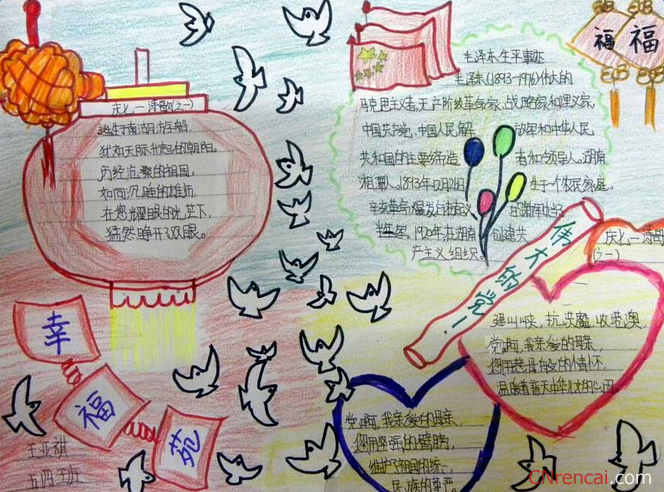 庆七一诗歌(之一)
诞生于南湖的游船,
犹如天际升起的朝阳。
历经沧桑的祖国,
如同沉睡的雄狮,
在您耀眼的光芒下,
猛然睁开了双眼。
毛泽东生平事迹
毛泽东(1893-1976)伟大的
马克思主义者,无产阶级革命家、战略家和理论家,
中国共产党、中国人民解放军和中华人民
共和国的主要缔造者和领导人。湖南
湘潭人。1893年12月26日生于一个农民家庭。
辛亥革命爆发后
1920年在湖南创建共
产主义组织。
福
福
伟大的党!
庆七一诗歌
(之一)
建山峡,抗洪魔,收港澳,
党啊,我亲爱的母亲,
您用慈母般的情怀,
温暖着普天中华儿女的心田
幸
福
苑
党啊,我亲爱的母亲,
您用坚强的臂膀,
维护了祖国的统一,
民族的尊严。
五四班
CNrencai.com